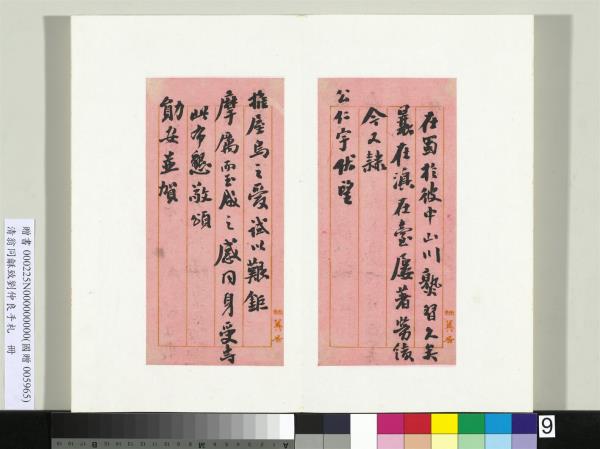 在蜀於彼中山川熟習久矣
曩在滇在臺屢著勞績
今又隸
公仁宇伏望
推屋烏之愛試以艱鉅
摩厲而玉成之感同身受專
此布懇敬頌
勛安並賀
贈書 000225N000000000(國贈 005965)
清翁同龢致劉仲良手札 冊
9